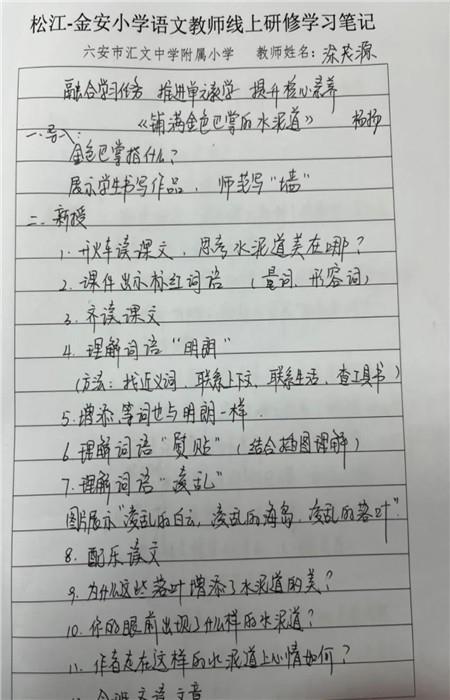 松江-金安小学语文教师线上研修学习笔记
六安市汇文中学附属小学 教师姓名:涂英源
融合学习任务 推进单元教学 提升核心素养
《铺满金色巴掌的水泥道》 杨扬
一.导入:
金色巴掌指什么?
展示学生书写作品, 师范写"墙"
二.新授
1.开火车读课文,思考水泥道美在哪?
2.课件出示标红词语 (量词、形容词)
3.齐读课文
4.理解词语"明朗"
(方法:找近义词、联系上下文、联系生活、查工具书)
5.增添等词也与明朗一样.
6.理解词语"熨贴"(结合插图理解)
7.理解词语"凌乱"
图片展示"凌乱的白云,凌乱的海岛、凌乱的落叶".
8.配乐读文
9.为什么这些落叶增添了水泥道的美?
10.你的眼前出现了什么样的水泥道?
11.作者走在这样的水泥道上心情如何?